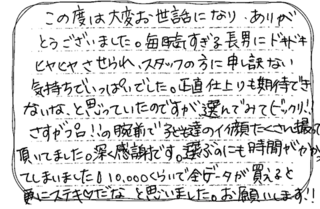 この度は大変お世話になり、ありが
とうございました。毎時すぎる長男にドキドキ
ヒヤヒヤさせられ、スタッフの方に申し訳ない
気持ちでいっぱいでした。正直仕上りも期待でき
ないな、と思っていたのですが選んでみてビックリ!!
さすがプロ!!の腕前で子ども達のイイ顔たくさん撮って
頂いてました。深く感謝です。選ぶのにも時間がかかっ
てしまいました。10,000くらいで全データが買えると
更にステキ♡だな と思いました。お願いします!!